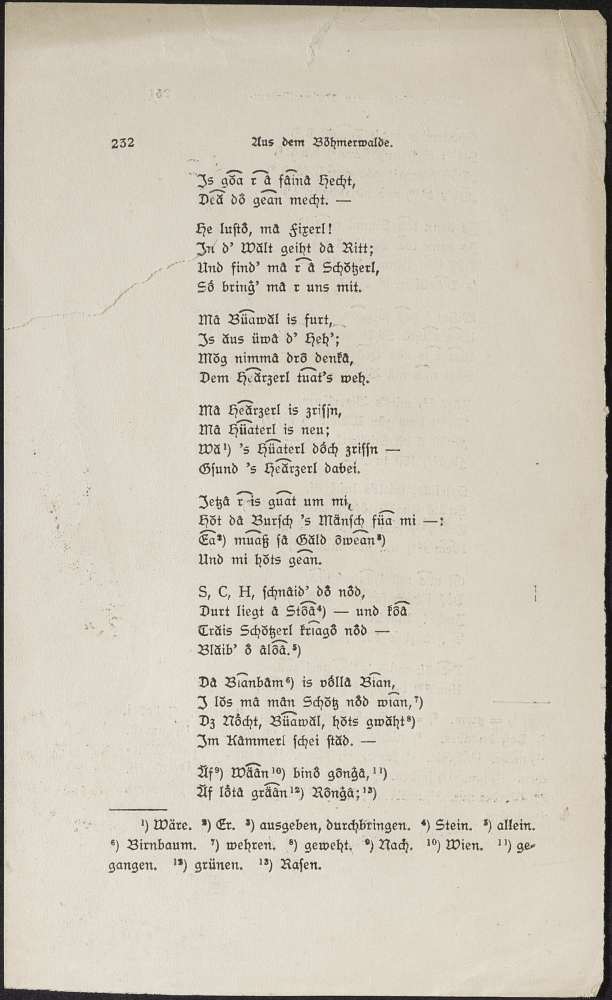 232
Aus dem Böhmerwalde.
Is gŏ͡a r a͡ făinā Hecht,
De͡ă dŏ ge͡an mecht. —
He lustŏ, mā Fixerl!
In d' Wălt geiht dā Ritt;
Und find' mā r a͡ Schŏtzerl,
Sŏ bring̊' mā r uns mit.
Mā Bü͡awăl is furt,
Is ăus üwā d' Heh';
Mŏg nimmā drŏ denkā,
Dem He͡ărzerl tu͡at's weh.
Mā He͡ărzerl is zrissn,
Mā Hü͡aterl is neu;
Wā¹) 's Hü͡aterl dŏch zrissn —
Gsund 's He͡ărzerl dabei.
Jetzā r is gu͡at um mi,
Hŏt dā Bursch 's Mănsch fü͡a mi —:
E͡a²) mu͡aß sā Găld ŏwe͡an³)
Und mi hŏts ge͡an.
S, C, H, schnăid' dŏ nŏd,
Durt liegt ā Stŏ͡ā⁴) — und kŏ͡ā
Trăis Schŏtzerl kri͡agŏ nŏd —
Blăib' ŏ ālŏ͡ā.⁵)
Dā Bi͡anbām⁶) is vŏllā Bi͡an,
I lŏs mā mān Schŏtz nŏd wi͡an,⁷)
Dz Nŏcht, Bü͡awăl, hŏts gwăht⁸)
Im Kāmmerl schei stăd. —
Ăf⁹) Wā͡ān¹⁰) binŏ gŏng̊ā,¹¹)
Ăf lŏtā grā͡ān¹²) Rŏng̊ā;¹³)
¹) Wäre. ²) Er. ³) ausgeben, durchbringen. ⁴) Stein. ⁵) allein.
⁶) Birnbaum. ⁷) wehren. ⁸) geweht. ⁹) Nach. ¹⁰) Wien. ¹¹) ge-
gangen. ¹²) grünen. ¹³) Rasen.